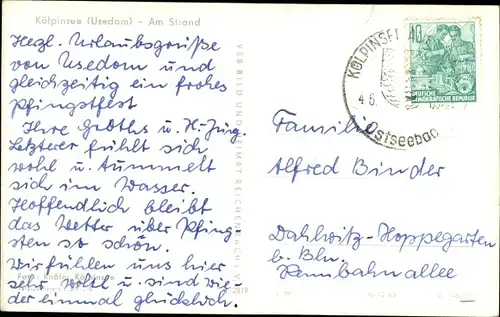 Kölpinsee (Usedom) - Am Strand
Herzl. Urlaubsgrüße
von Usedom und
gleichzeitig ein frohes
Pfingstfest
Ihre u. H.-Jürg.
Letzterer fühlt sich
wohl u. tummelt
sich im Wasser.
Hoffentlich bleibt
das Wetter über Pfing-
sten so schön.
Wir fühlen uns hier
sehr wohl u. sind wie-
der einmal glücklich.
VEB BILD UND HEIMAT REICHENBACH I. V.
KÖLPINSEE
4.6.
Ostseebad
40
DEUTSCHE
DEMOKRATISCHE REPUBLIK
Familie
Alfred Binder
Dahlwitz-Hoppegarten
b. Bln.
Rennbahnallee